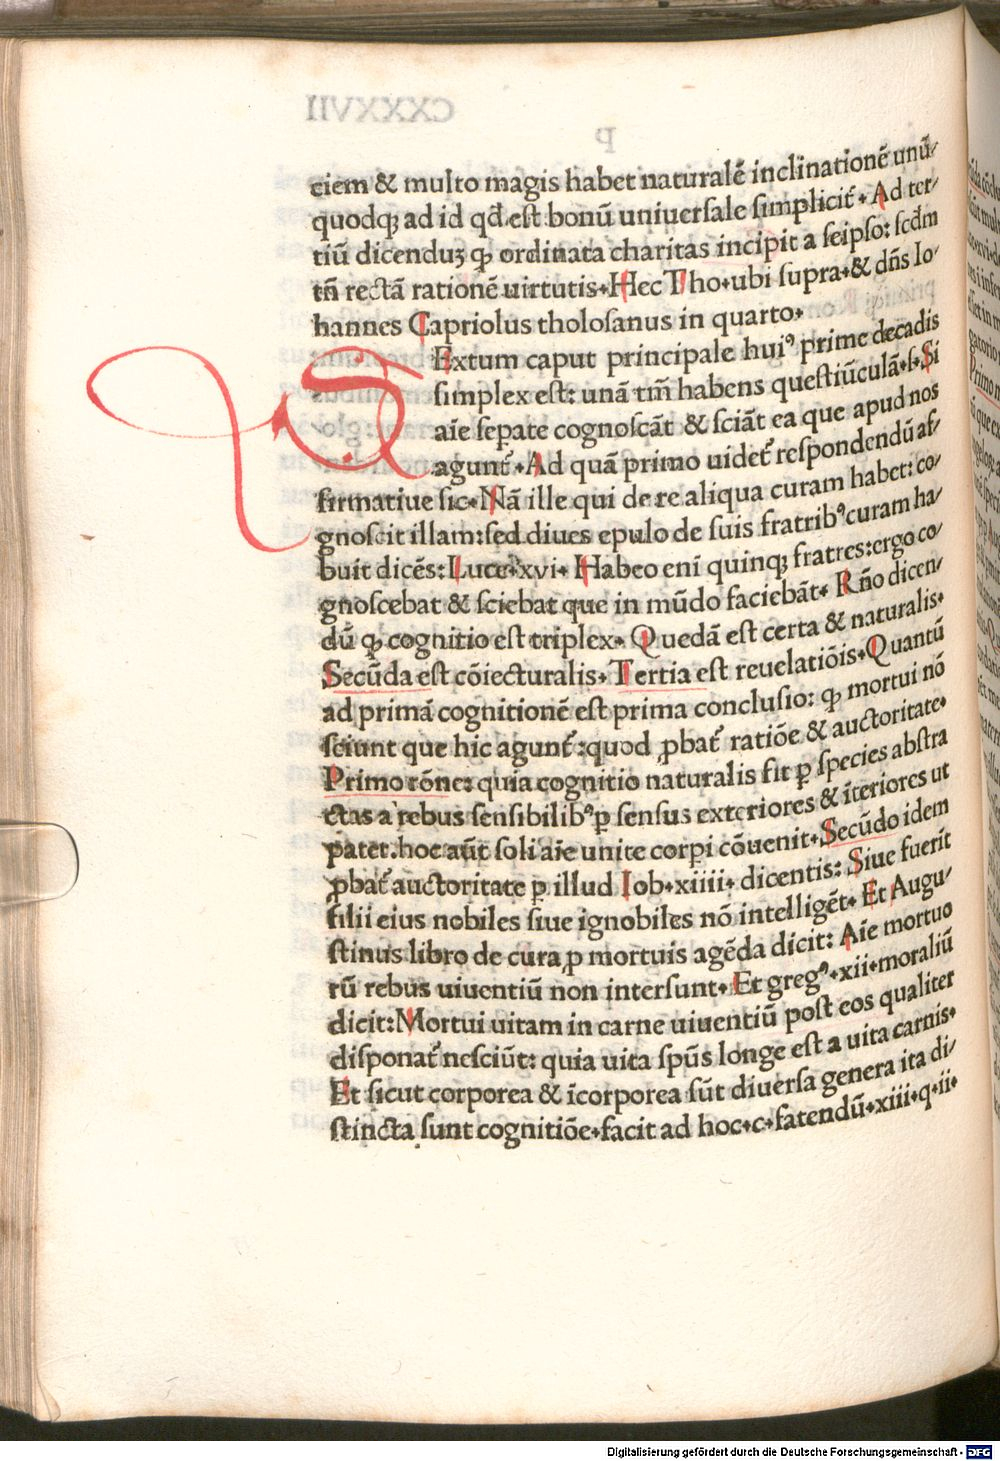 ciem & multo magis habet naturalē inclinationē unū-
quodq̨ ad id qđ est bonū uniuersale simplicit̄. Ad ter-
tiū dicenduʒ ꝙ ordinata charitas incipit a seipso: scđm
tn̄ rectā rationē uirtutis. Hec Tho. ubi supra. & dn̄s Io-
hannes Capriolus tholosanus in quarto.
SExtum caput principale huiꝰ prime decadis
simplex est: unā tm̄ habens questiūculā. s. Si
aīe sepate cognoscāt & sciāt ea que apud nos
agunt̄. Ad quā primo uidet̄ respondendū af-
firmatiue sic. Nā ille qui de re aliqua curam habet: co-
gnoscit illam: sed diues epulo de suis fratribꝰ curam ha-
buit dicēs: Luce. xvi. Habeo enī quinq̨ fratres: ergo co-
gnoscebat & sciebat que in mūdo faciebāt. Rn̄o dicen-
dū ꝙ cognitio est triplex. Quedā est certa & naturalis.
Secūda est cōiecturalis. Tertia est reuelatiōis. Quantū
ad primā cognitionē est prima conclusio: ꝙ mortui nō
sciunt que hic agunt̄: quod ꝓbat̄ ratiōe & auctoritate.
Primo rōne: quia cognitio naturalis fit ꝑ species abstra
ctas a rebus sensibilibꝰ ꝑ sensus exteriores & īteriores ut
patet. hoc aūt soli aīe unite corpi cōuenit. Secūdo idem
ꝓbat̄ auctoritate ꝑ illud Iob. xiiii. dicentis: Siue fuerīt
filii eius nobiles siue ignobiles nō intelligēt. Et Augu-
stinus libro de cura ꝓ mortuis agēda dicit: Aīe mortuo
rū rebus uiuentiū non intersunt. Et gregꝰ. xii. moraliū
dicit: Mortui uitam in carne uiuentiū post eos qualiter
disponat̄ nesciūt: quia uita spūs longe est a uita carnis.
Et sicut corporea & īcorporea sūt diuersa genera ita di-
stincta sunt cognitiōe. facit ad hoc. c. fatendū. xiii. q. ii.
Digitalisierung gefördert durch die Deutsche Forschungsgemeinschaft - DFG